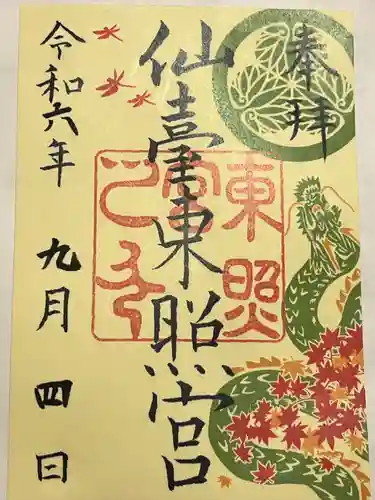 奉拝
仙臺東照宮
東照宮
令和六年
九月
四日